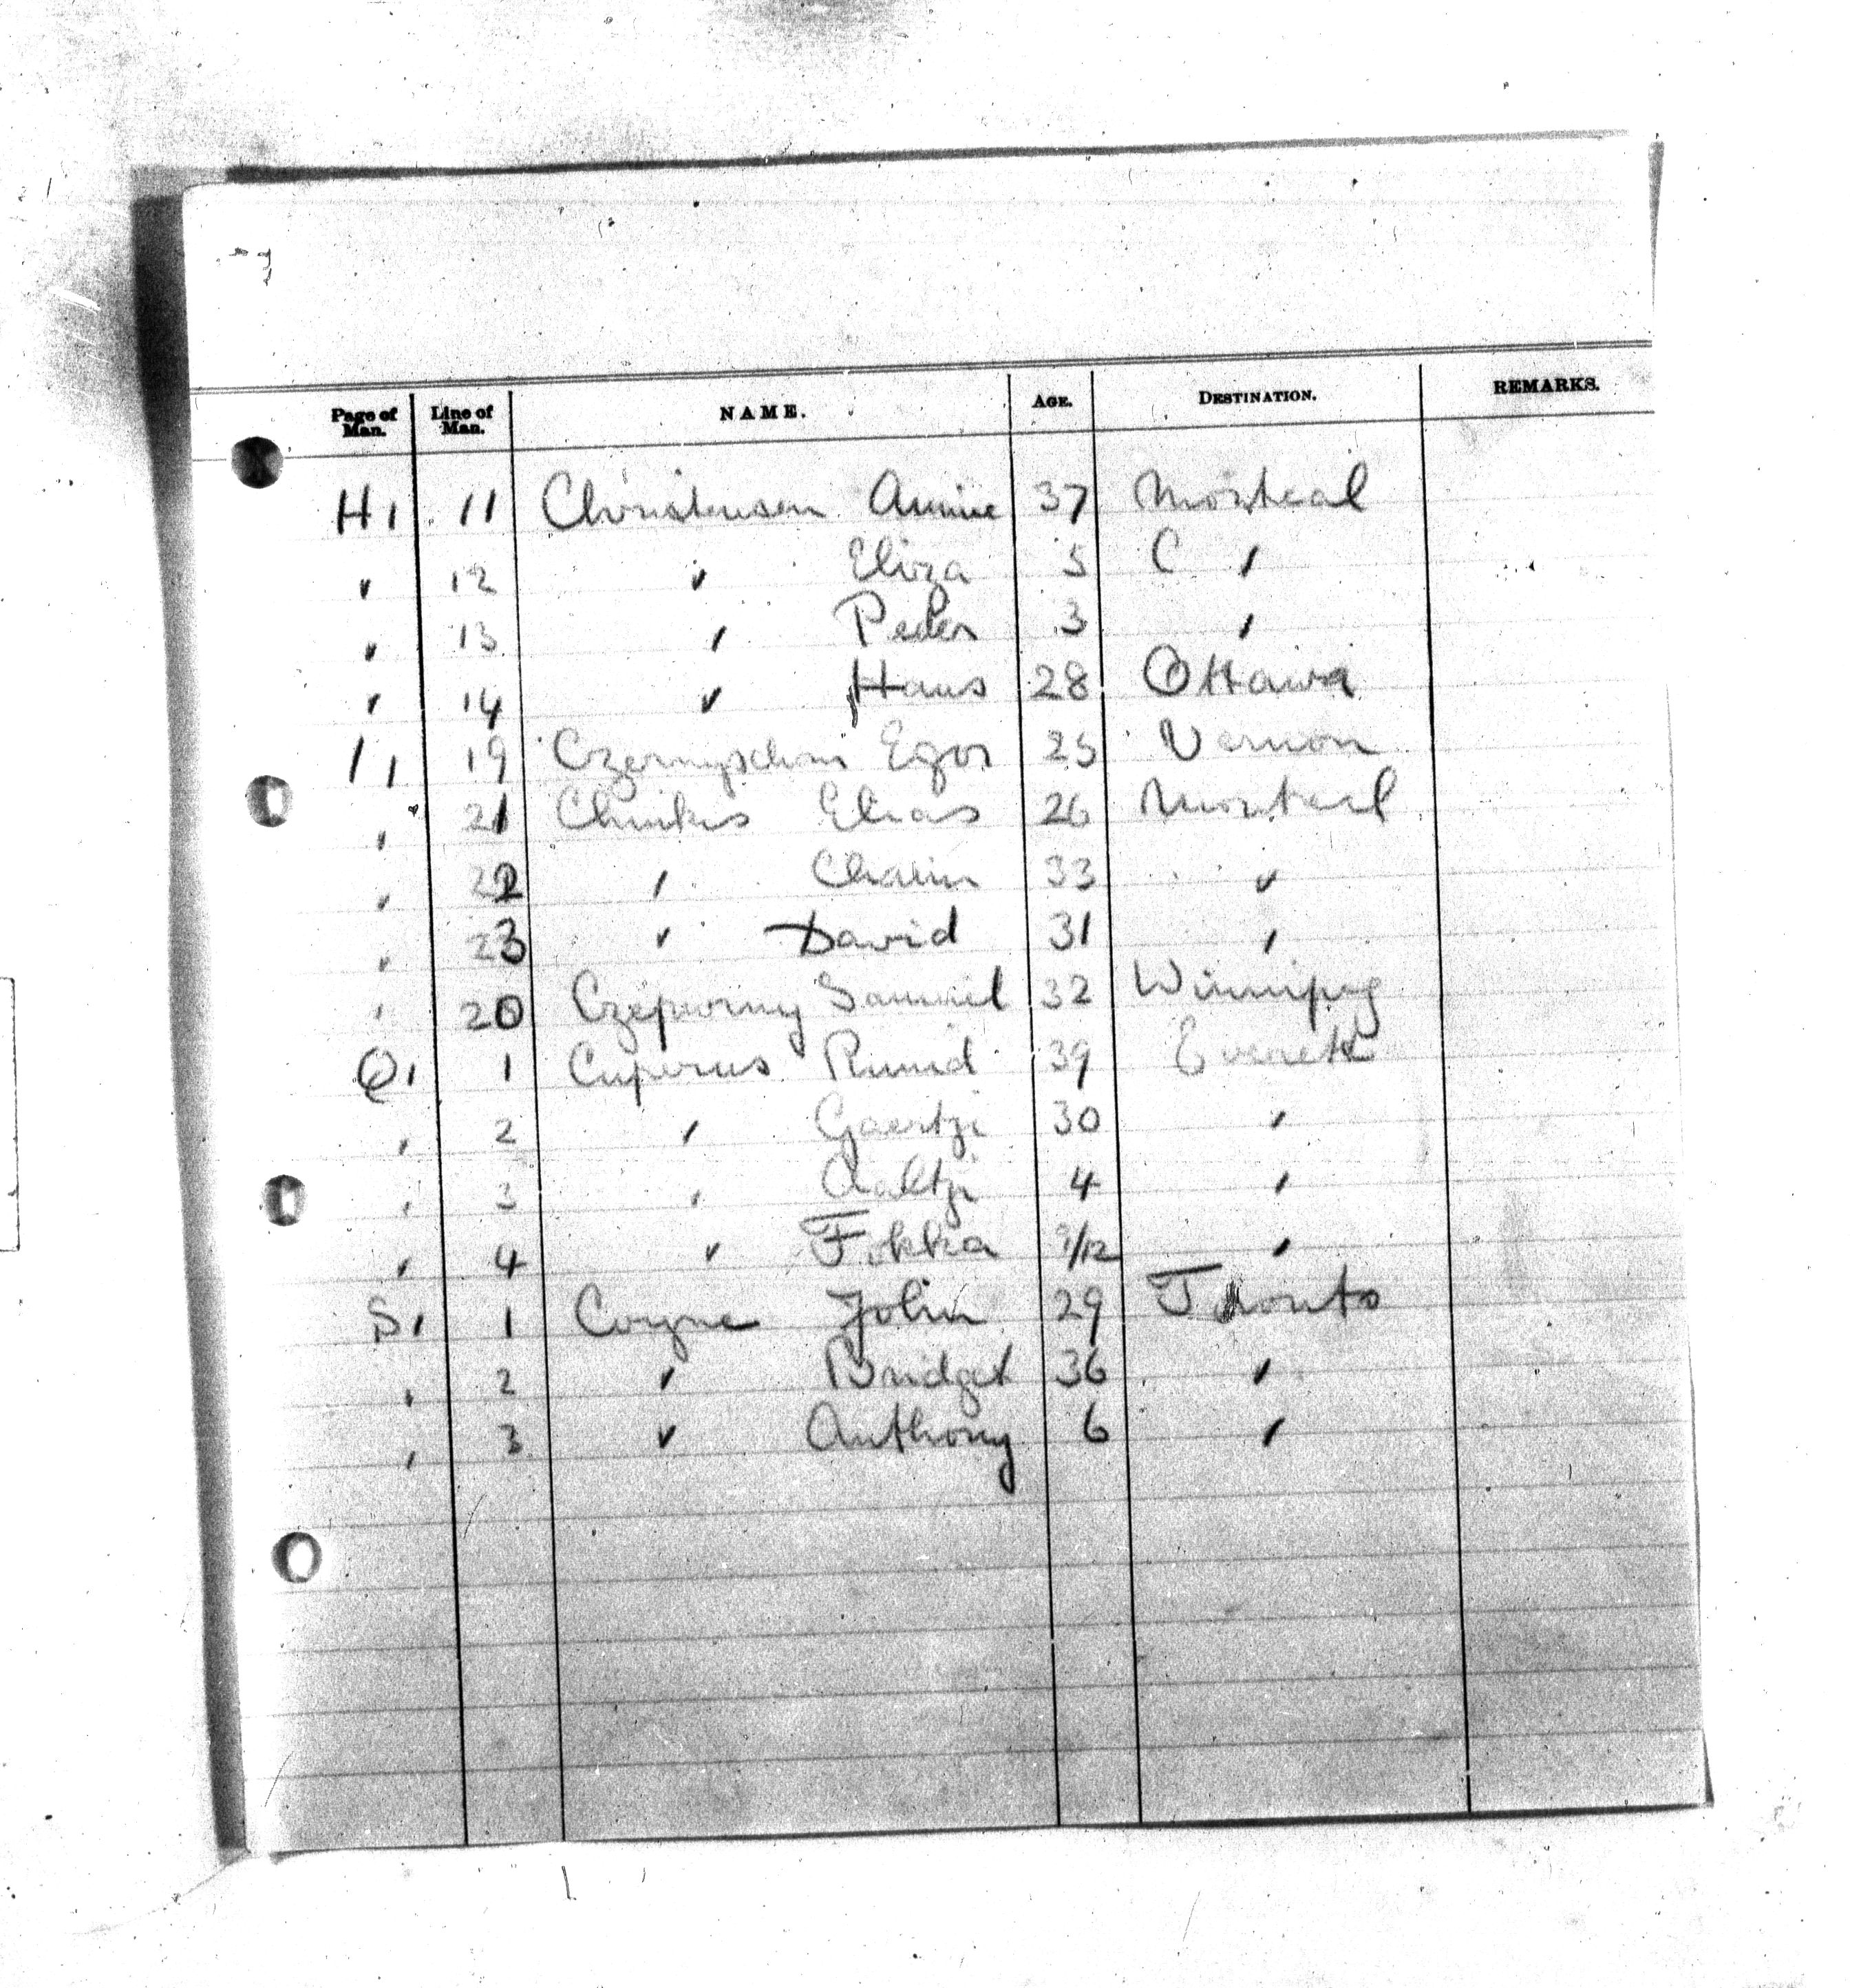 Page of Man. Line of Man. NAME. AGE. DESTINATION. REMARKS.
H1 11 Christensen Annie 37 Montreal
" 12 " Eliza 5 C "
" 13 " Peder 3 "
" 14 " Hans 28 Ottawa
I1 19 Egor 25 Vernon
" 21 Elias 26 Montreal
" 22 " Chaim 33 "
" 23 " David 31 "
" 20 Samuel 32 Winnipeg
Q1 1 Cuperus 39 Everett
" 2 " Gaertzi 30 "
" 3 " Aaltzi 4 "
" 4 " Fokka 9/12 "
S1 1 Coyne John 29 Toronto
" 2 " Bridget 36 "
" 3 " Anthony 6 "